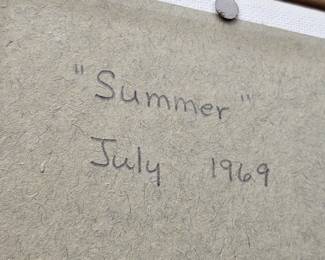 "Summer"
July 1969